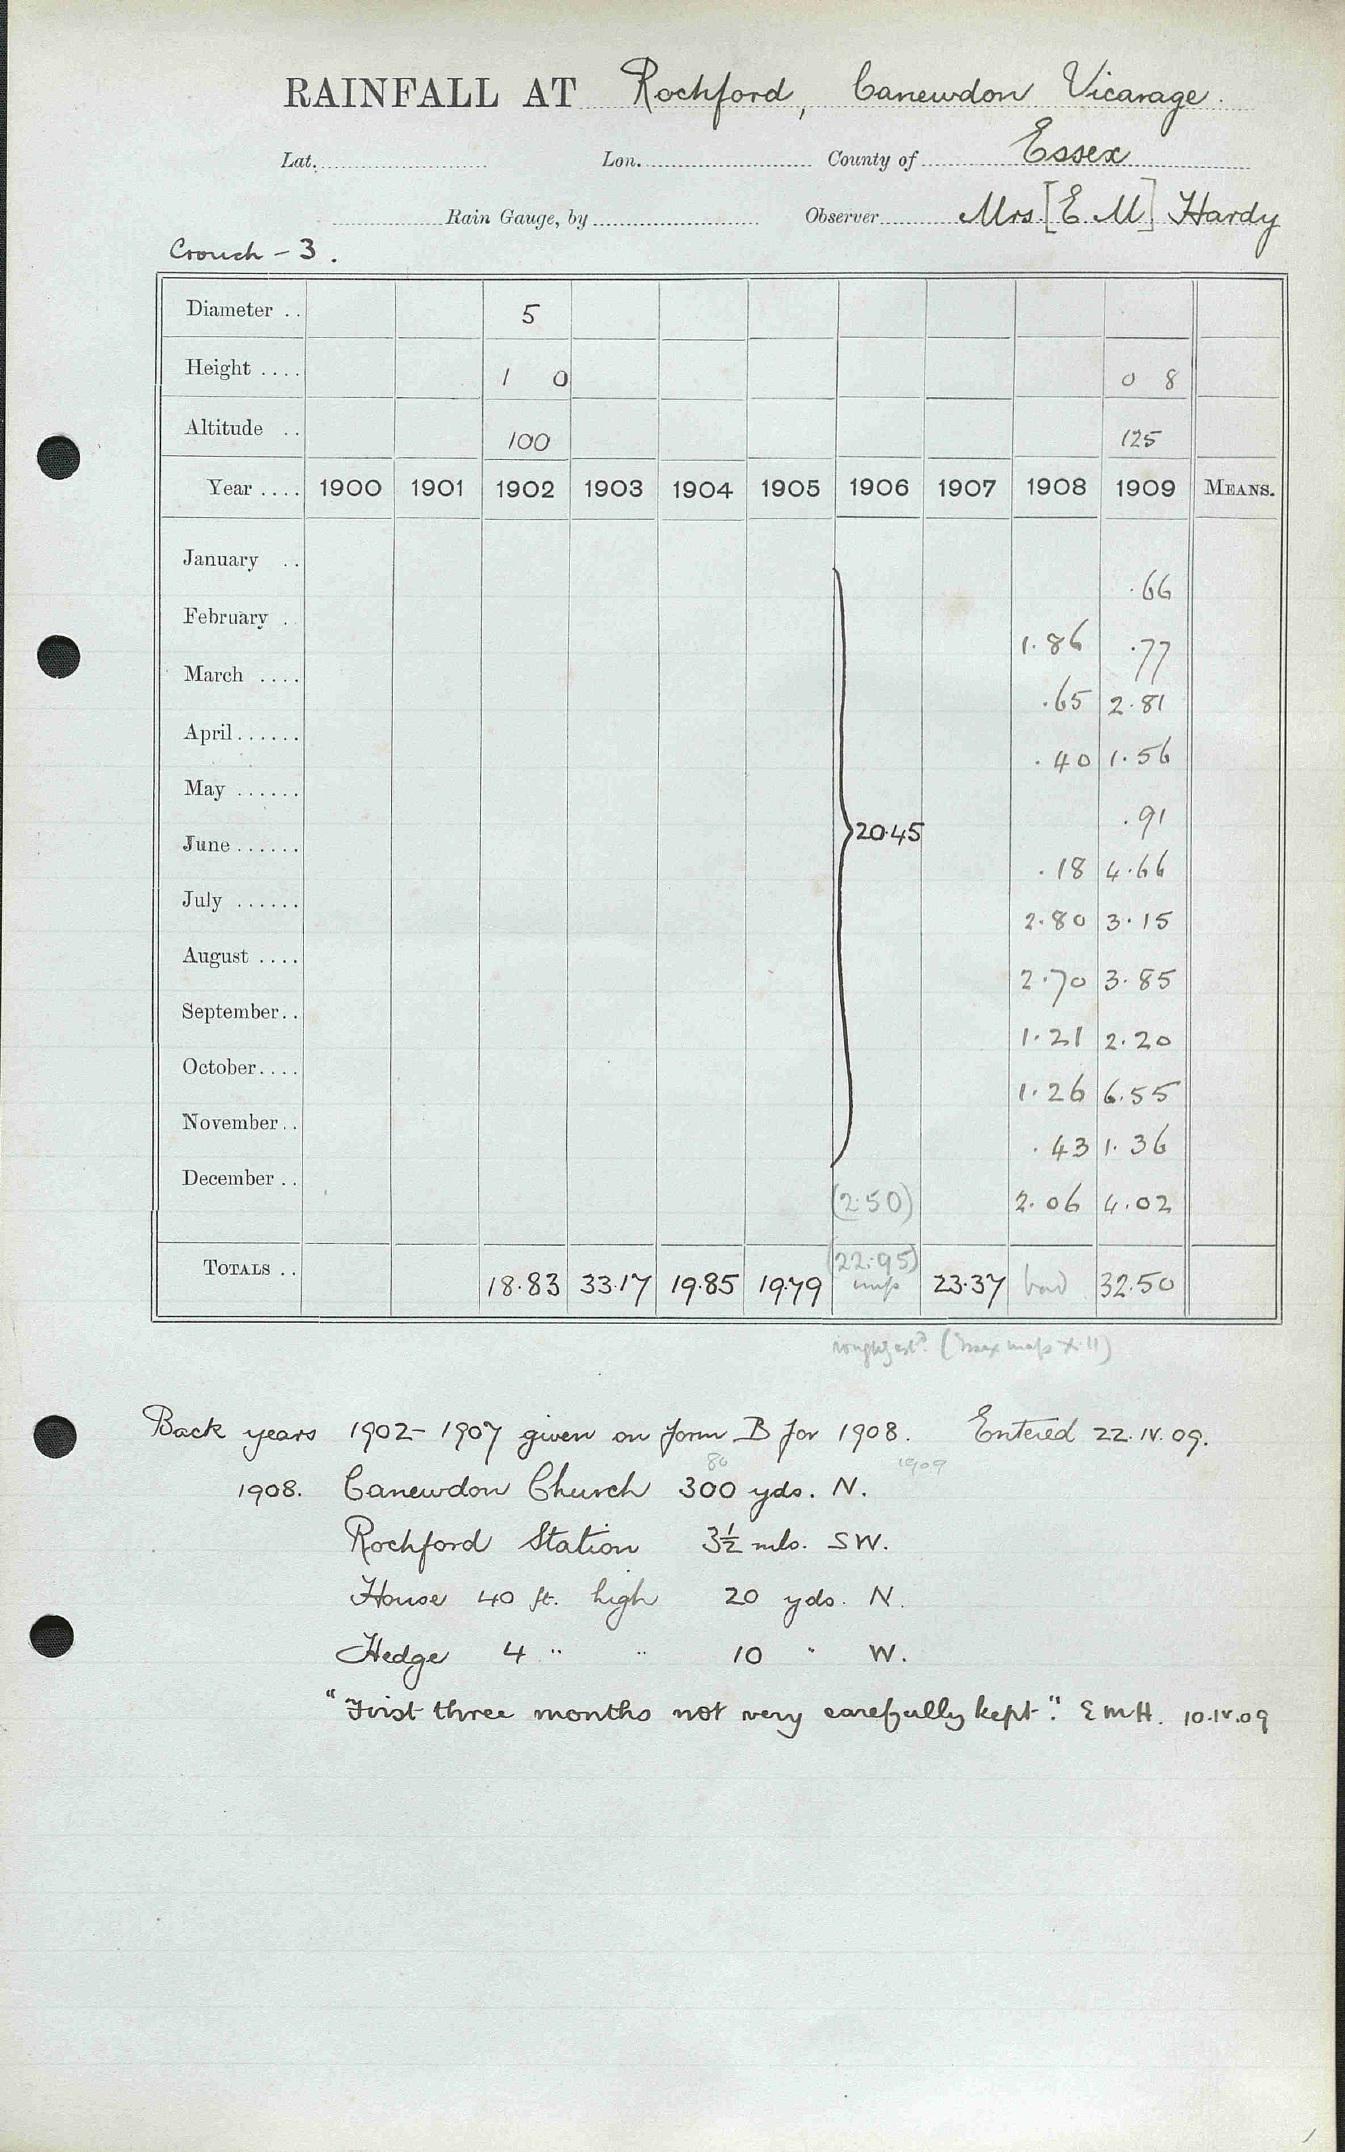 RAINFALL AT Rochford, Canewdon Vicarage.
Lat. Lon. County of Essex
Rain Gauge, by Observer Mrs [E M] Hardy
Crouch - 3.
Diameter .. 5
Height .... 1 0 0 8
Altitude .. 100 125
Year .... 1900 1901 1902 1903 1904 1905 1906 1907 1908 1909 MEANS.
January .. .66
February . 1.86 .77
March .... .65 2.81
April ...... .40 1.56
May ...... .91
20.45
June ...... .18 4.66
July ...... 2.80 3.15
August .... 2.70 3.85
September.. 1.21 2.20
October.... 1.26 6.55
November.. .43 1.36
December .. (2.50) 2.06 4.02
(22.95)
TOTALS .. 18.83 33.17 19.85 19.79 maps 23.37 bad 32.50
(Essex maps X.11)
Back years 1902-1907 given on form B for 1908. Entered 22.IV.09.
80 1909
1908. Canewdon Church 300 yds. N.
Rochford Station 3½ mls. SW.
House 40 ft. high 20 yds. N.
Hedge 4 " " 10 " W.
"First three months not very carefully kept". EMH. 10.IV.09